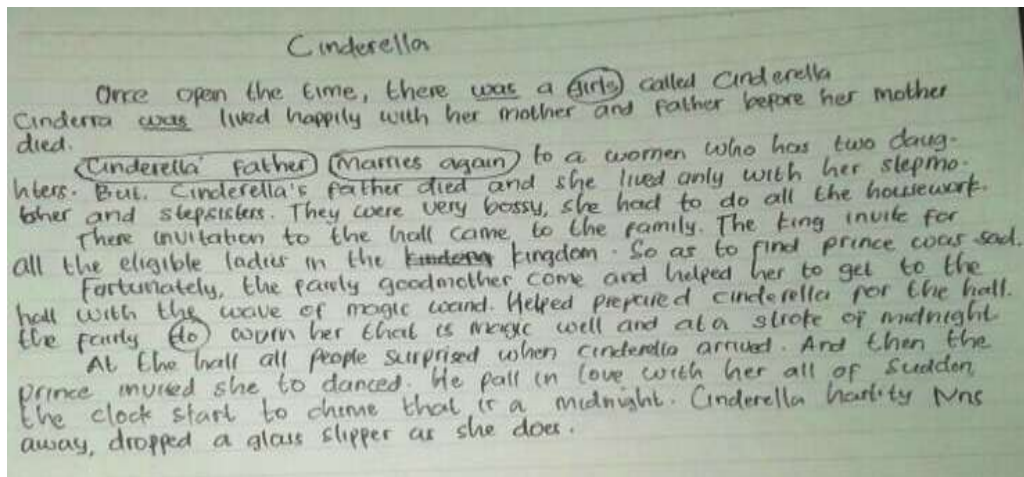 Cinderella
Once open the time, there was a girls called Cinderella
Cinderra was lived happily with her mother and father before her mother
died.
Cinderella' father Marries again to a women who has two daug-
hters. But. Cinderella's father died and she lived only with her stepmo-
ther and stepsisters. They were very bossy, she had to do all the housework.
There invitation to the hall came to the family. The king invite for
all the eligible ladies in the kingdom. So as to find prince was sad.
Fortunately, the fairly goodmother come and helped her to get to the
hall with the wave of magic wand. Helped prepared cinderella for the hall.
the fairly do worn her that is magic well end at a stroke of midnight
At the hall all people surprised when cinderella arrived. And then the
prince invited she to danced. He fall in love with her all of sudden,
the clock start to chime that is a midnight. Cinderella away, dropped a glass slipper as she does.